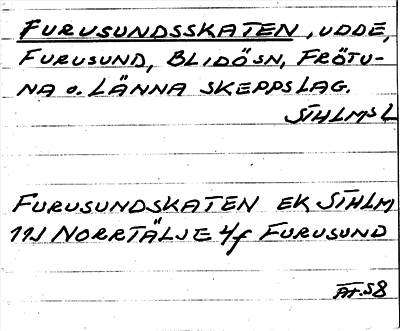 FURUSUNDSSKATEN, UDDE,
FURUSUND, BLIDÖSN, FRÖTU-
NA o. LÄNNA SKEPPSLAG.
STHLMS L
FURUSUNDSKATEN EK STHLM
11J NORRTÄLJE 4/f FURUSUND
ÄT.58